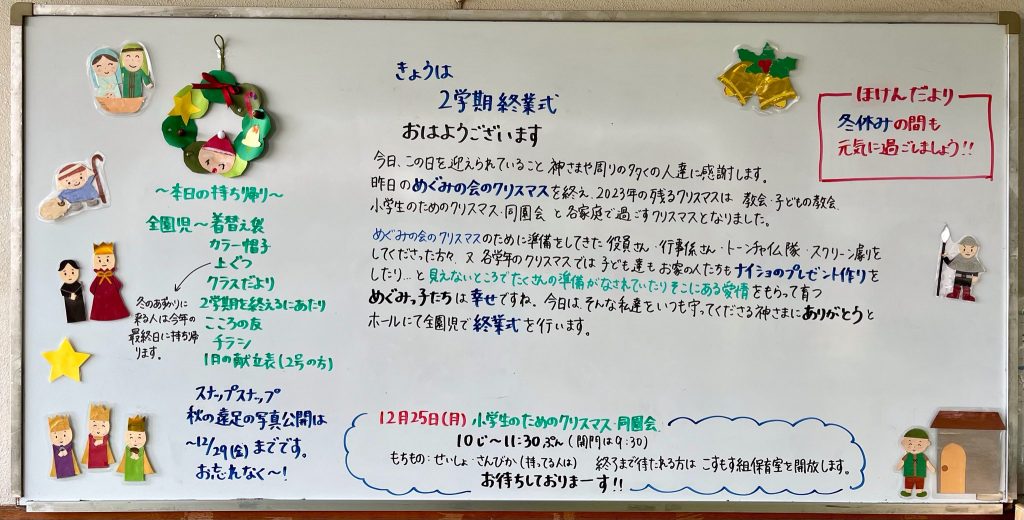 きょうは
2学期終業式
おはようございます
今日、この日を迎えられていること 神さまや周りの多くの人達に感謝します。
昨日のめぐみの会のクリスマスを終え、2023年の残るクリスマスは 教会・子どもの教会
小学生のためのクリスマス・同園会 と各家庭で過ごすクリスマスとなりました。
めぐみの会のクリスマスのために準備をしてきた 役員さん・行事係さん・トーンチャイム隊・スクリーン劇りを
してくださった方々、又 各学年のクリスマスでは 子ども達も お家の人たちも ナイショのプレゼント作りを
したり…と 見えないところで たくさんの準備がなされていたり そこにある愛情をもらって育つ
めぐみっ子たちは 幸せですね。今日は そんな私達をいつも守ってくださる神さまに ありがとうと
ホールにて全園児で 終業式を行います。
ほけんだより
冬休みの間も
元気に過ごしましょう!!
〜本日の持ち帰り〜
全園児〜着替え袋
カラー帽子
上ぐつ
クラスだより
2学期を終えるにあたり
こころの友
チラシ
1月の献立表(2号の方)
冬のあずかりに
来る人は今年の
最終日に持ち帰
ります。
スナップスナップ
秋の遠足の写真公開は
〜12/29(金)までです。
お忘れなく〜!
12月25日(月) 小学生のためのクリスマス・同園会
10じ〜11:30ぷん(開門は9:30)
もちもの:せいしょ・さんびか(持ってる人は) 終了まで待たれる方は こすもす組保育室を開放します。
お待ちしておりまーす!!